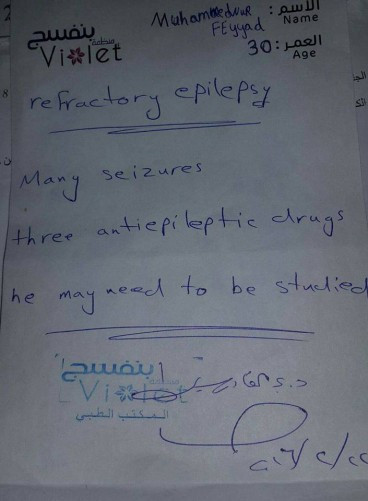 بنفسج
منظمة
Violet
الاسم : Muhammednur
Name
FEyyad
العمر : 30
Age
refractory epilepsy
Many seizures
three antiepileptic drugs
he may need to be studied
بنفسج
Violet
المكتب الطبي